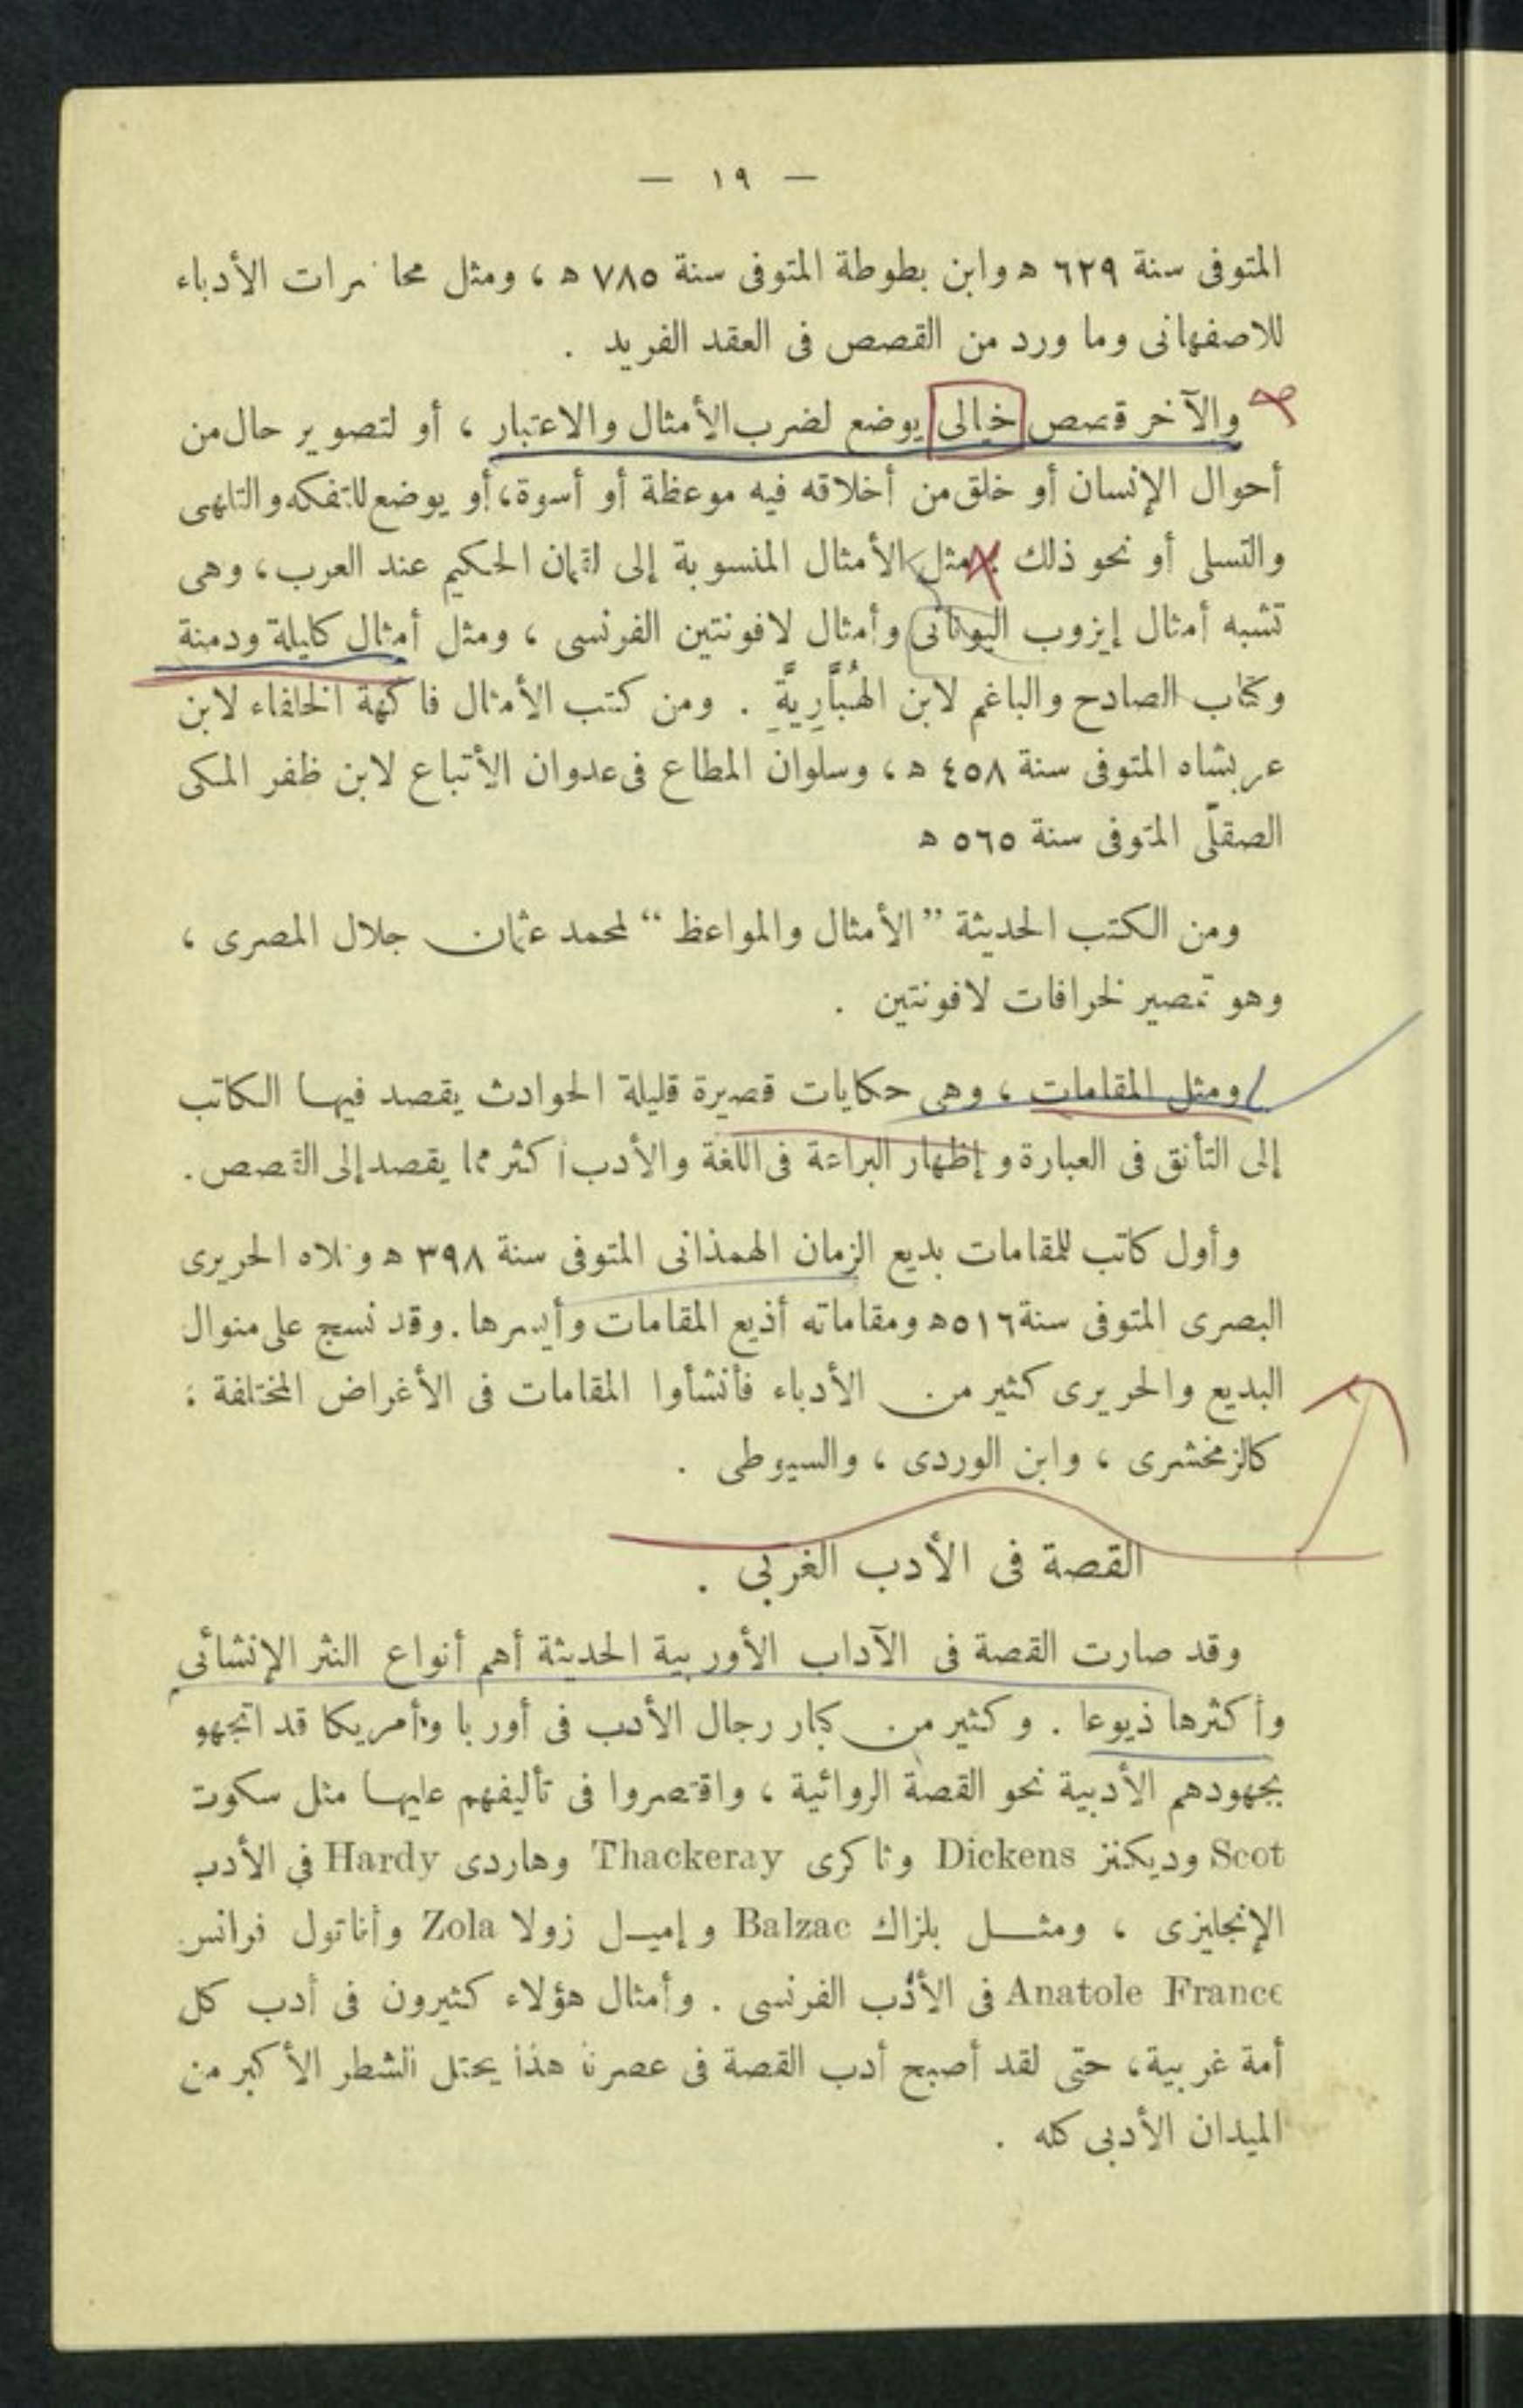 — ١٩ —
المتوفى سنة ٦٢٩ ﻫ وابن بطوطة المتوفى سنة ٧٨٥ ﻫ ، ومثل محاضرات الأدباء
للاصفهانى وما ورد من القصص فى العقد الفريد .
والآخر قصص خيالى يوضع لضرب الأمثال والاعتبار ، أو لتصوير حال من
أحوال الإنسان أو خلق من أخلاقه فيه موعظة أو أسوة، أو يوضع للتفكه والتلهى
والتسلى أو نحو ذلك . مثل الأمثال المنسوبة إلى لقمان الحكيم عند العرب، وهى
تشبه أمثال إيزوب اليونانى وأمثال لافونتين الفرنسى ، ومثل أمثال كليلة ودمنة
وكتاب الصادح والباغم لابن الهُبَّارِيَّةِ . ومن كتب الأمثال فاكهة الخلفاء لابن
عربشاه المتوفى سنة ٤٥٨ ﻫ ، وسلوان المطاع فى عدوان الأتباع لابن ظفر المكى
الصقلّى المتوفى سنة ٥٦٥ ﻫ
ومن الكتب الحديثة ”الأمثال والمواعظ“ لمحمد عثمان جلال المصرى ،
وهو تمصير لخرافات لافونتين .
ومثل المقامات ، وهى حكايات قصيرة قليلة الحوادث يقصد فيها الكاتب
إلى التأنق فى العبارة و إظهار البراعة فى اللغة والأدب أكثر مما يقصد إلى القصص.
وأول كاتب للمقامات بديع الزمان الهمذانى المتوفى سنة ٣٩٨ ﻫ وتلاه الحريرى
البصرى المتوفى سنة ٥١٦ﻫ ومقاماته أذيع المقامات وأيسرها. وقد نسج على منوال
البديع والحريرى كثير من الأدباء فأنشأوا المقامات فى الأغراض المختلفة :
كالزمخشرى ، وابن الوردى ، والسيوطى .
القصة فى الأدب الغربى .
وقد صارت القصة فى الآداب الأوربية الحديثة أهم أنواع النثر الإنشائى
وأكثرها ذيوعا . وكثير من كبار رجال الأدب فى أوربا وأمريكا قد اتجهو
بجهودهم الأدبية نحو القصة الروائية ، واقتصروا فى تأليفهم عليها مثل سكوت
Scot وديكنز Dickens وثاكرى Thackeray وهاردى Hardy في الأدب
الإنجليزى ، ومثل بلزاك Balzac و إميل زولا Zola وأناتول فرانس
Anatole France فى الأدب الفرنسى . وأمثال هؤلاء كثيرون فى أدب كل
أمة غربية، حتى لقد أصبح أدب القصة فى عصرنا هذا يحتل الشطر الأكبر من
الميدان الأدبى كله .